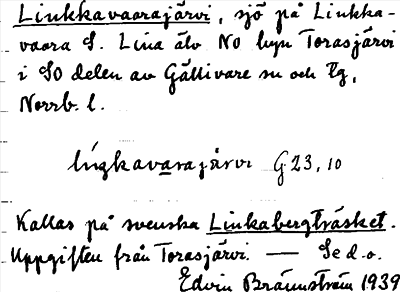 Linkkavaarajärvi, sjö på Linkka-
vaara S. Lina älv NO byn Torasjärvi
i SO delen av Gällivare sn och tg,
Norrb. l.
liŋkavarajärvi G 23, 10
Kallas på svenska Linkabergträsket.
Uppgiften från Torasjärvi. — Se d.o.
Edvin Brännström 1939